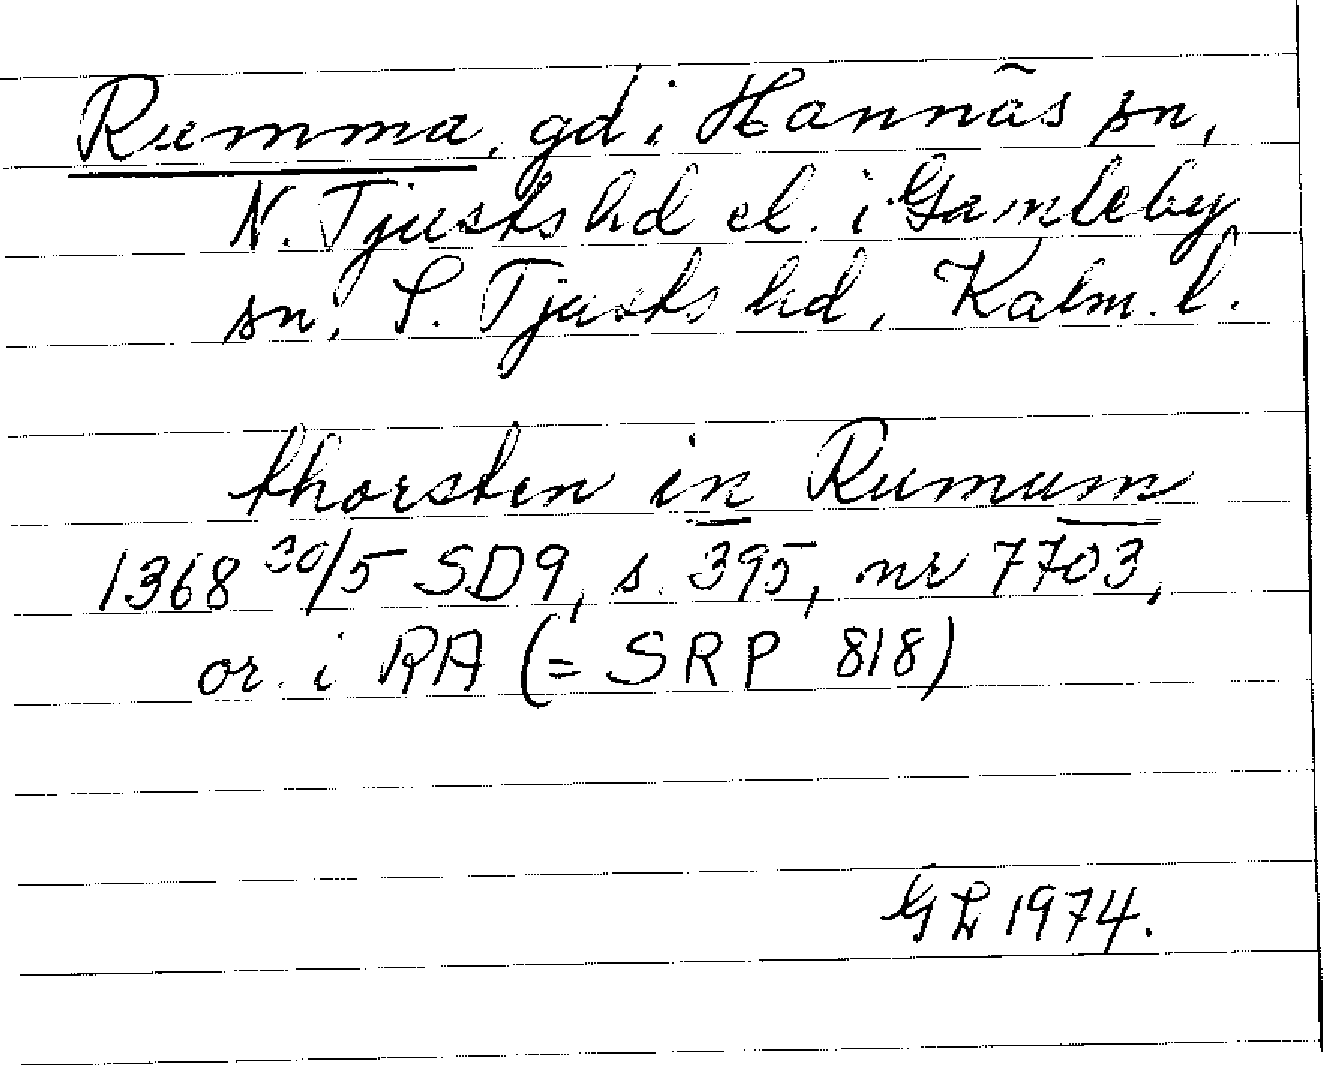 Rumma, gd i Hannäs sn,
N. Tjusts hd el. i Gamleby
sn, S. Tjusts hd, Kalm. l.
thorsten in Rumum
1368 30/5 SD9, s. 395, nr 7703,
or. i RA (= SRP 818)
GL 1974.